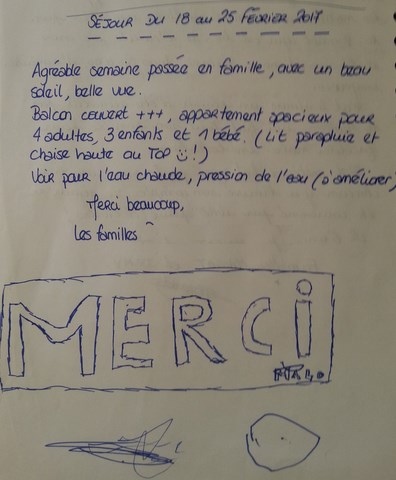 SÉJOUR DU 18 au 25 FÉVRIER 2017
Agréable semaine passée en famille, avec un beau
soleil, belle vue.
Balcon couvert +++, appartement spacieux pour
4 adultes, 3 enfants et 1 bébé. (Lit parapluie et
chaise haute au TOP ☺!)
Voir pour l'eau chaude, pression de l'eau (à améliorer)
Merci beaucoup,
Les familles
MERCI